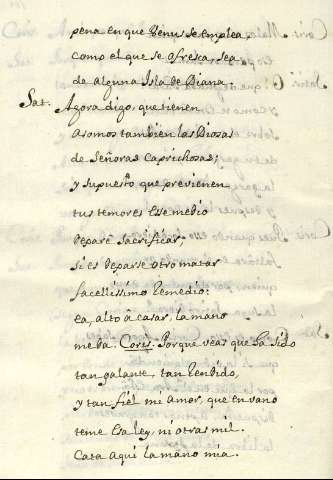 pena en que Venus se emplea,
como el que se ofresca, sea
de alguna Isla de Diana.
Sat. Agora digo, que tienen
asomos tambien las Diosas
de Señoras Caprichosas;
y supuesto que previenen
tus temores ese medio
de pare sacrificar,
si es de parse otro matar
facelissimo Remedio:
ea, alto â casar, la mano
me da. Coris. Porque veas que ha sido
tan galante, tan Rendido,
y tan fiel mi Amor, que en vano
teme esa ley, ni otras mil.
Cata aqui la mano mia.